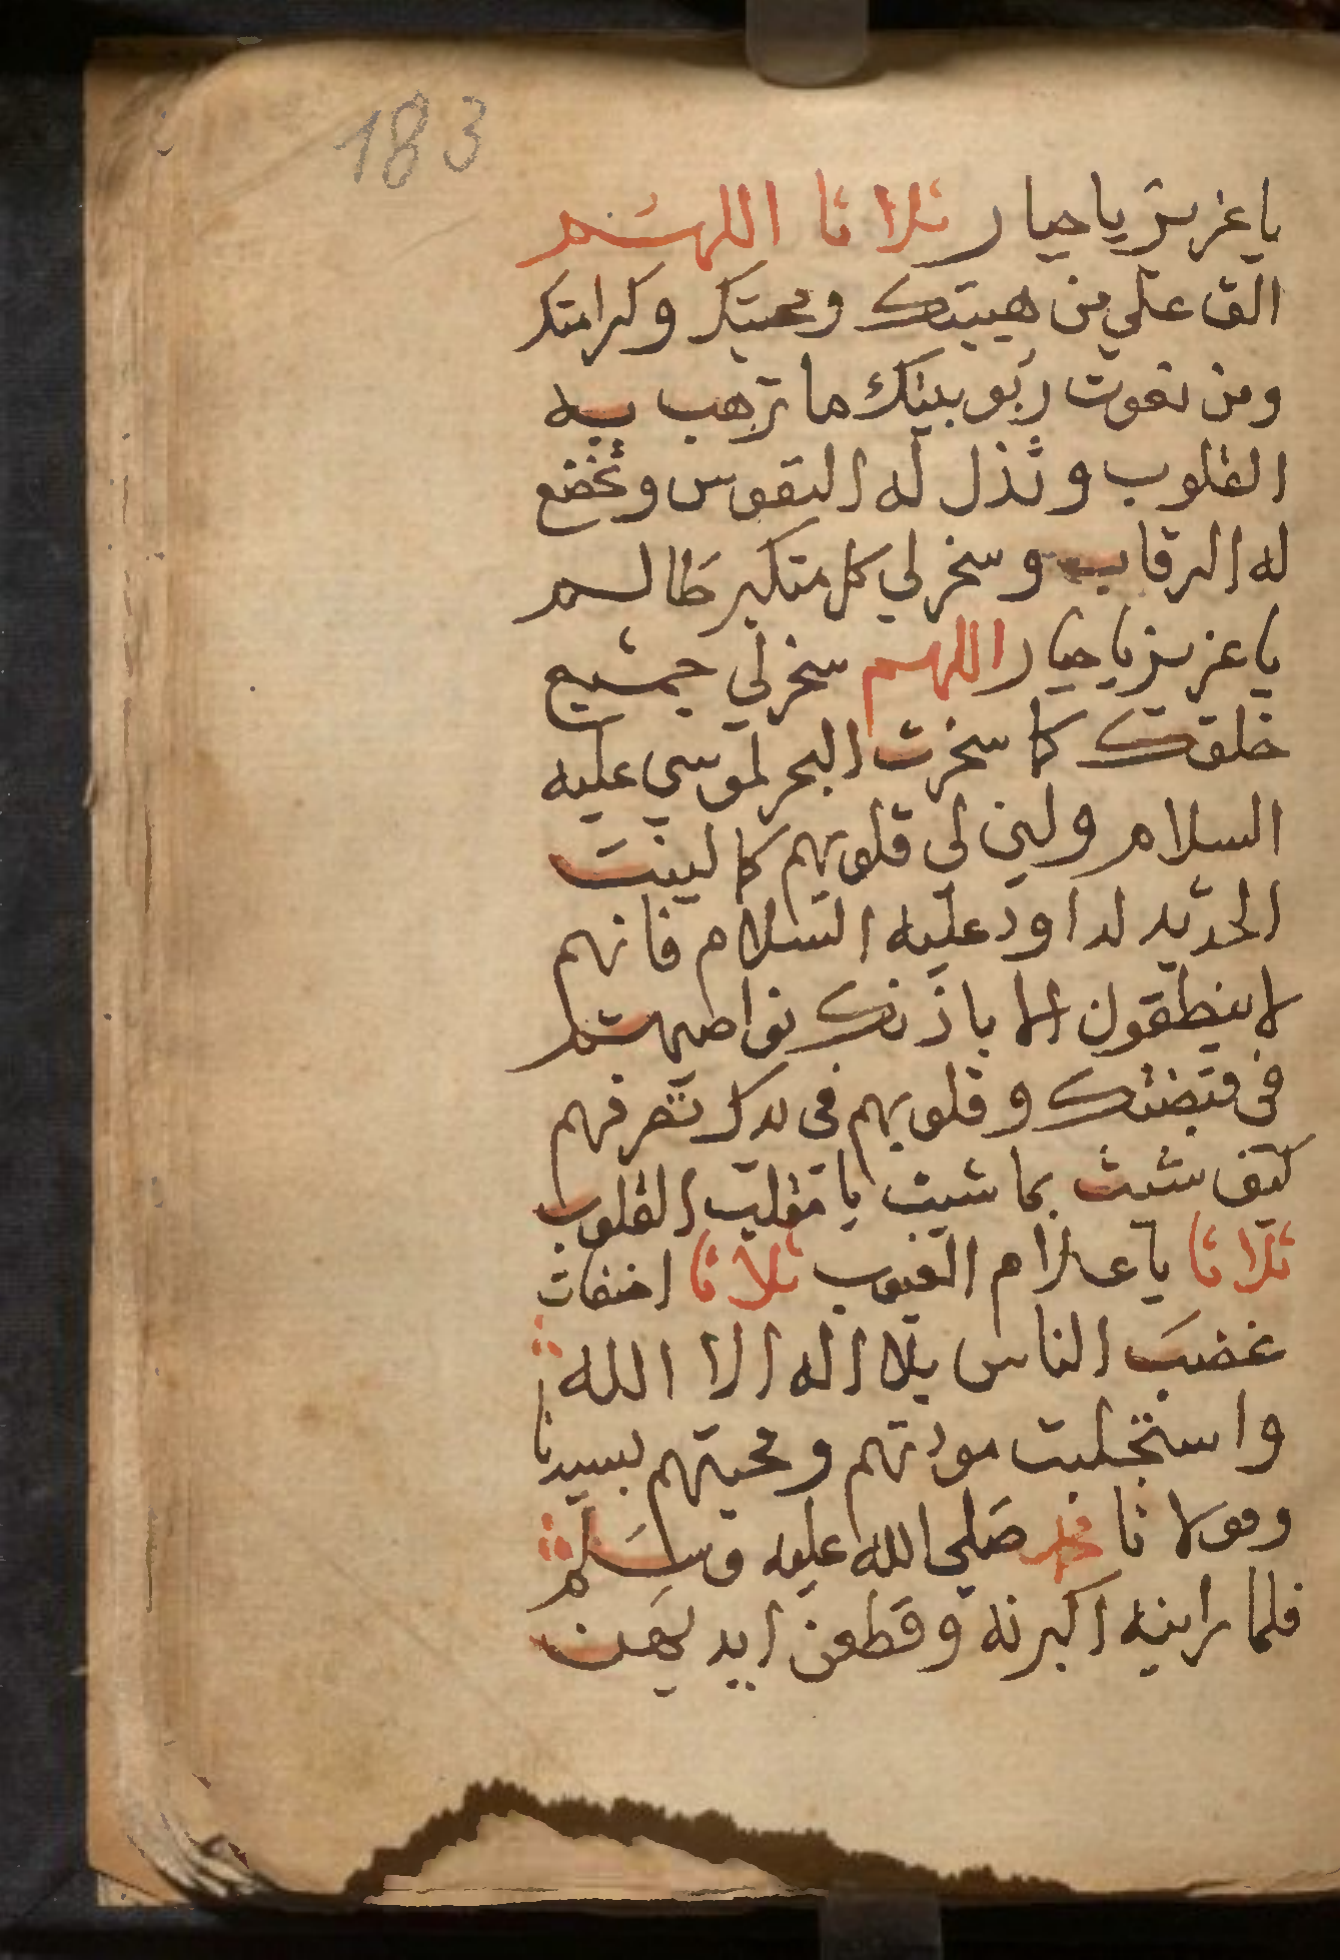 183
يا عزيز يا جبار ثلاثا اللهم
الق علي من هيبتك ومحبتك وكرامتك
ومن نعوت ربوبيتك ما ترهب به
القلوب وتذل له النفوس وتخضع
له الرقاب وسخر لي كل متكبر ظالم
يا عزيز يا جبار اللهم سخر لي جميع
خلقك كما سخرت البحر لموسي عليه
السلام ولين لي قلوبهم كما لينت
الحديد لداود عليه السلام فانهم
لا ينطقون الا باذنك نواصيهم
في قبضتك وقلوبهم في يدك تصرفهم
كيف شيت بما شيت يا مقلب القلوب
ثلاثا يا علام الغيوب ثلاثا اطفات
غضب الناس بلا اله الا الله
واستجلبت مودتهم ومحبتهم بسيدنا
ومولانا محمد صلي الله عليه وسلم
فلما راينه اكبرنه وقطعن ايديهن